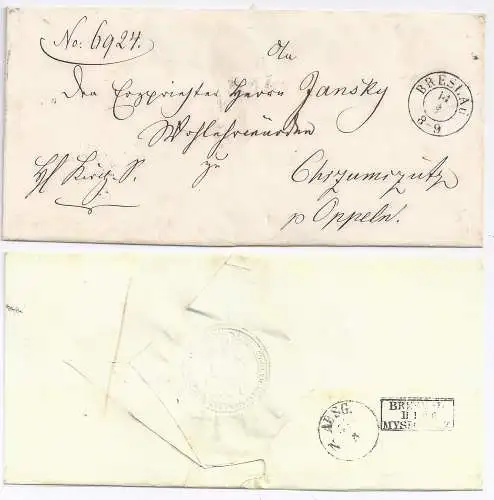 No: 6924.
An
den Erzpriester Herrn Jansky
Wohlehrwürden
zu
Chrzumszütz
p Oppeln.
BRESLAU
14
8-9
AUSG.
BRES
MYS